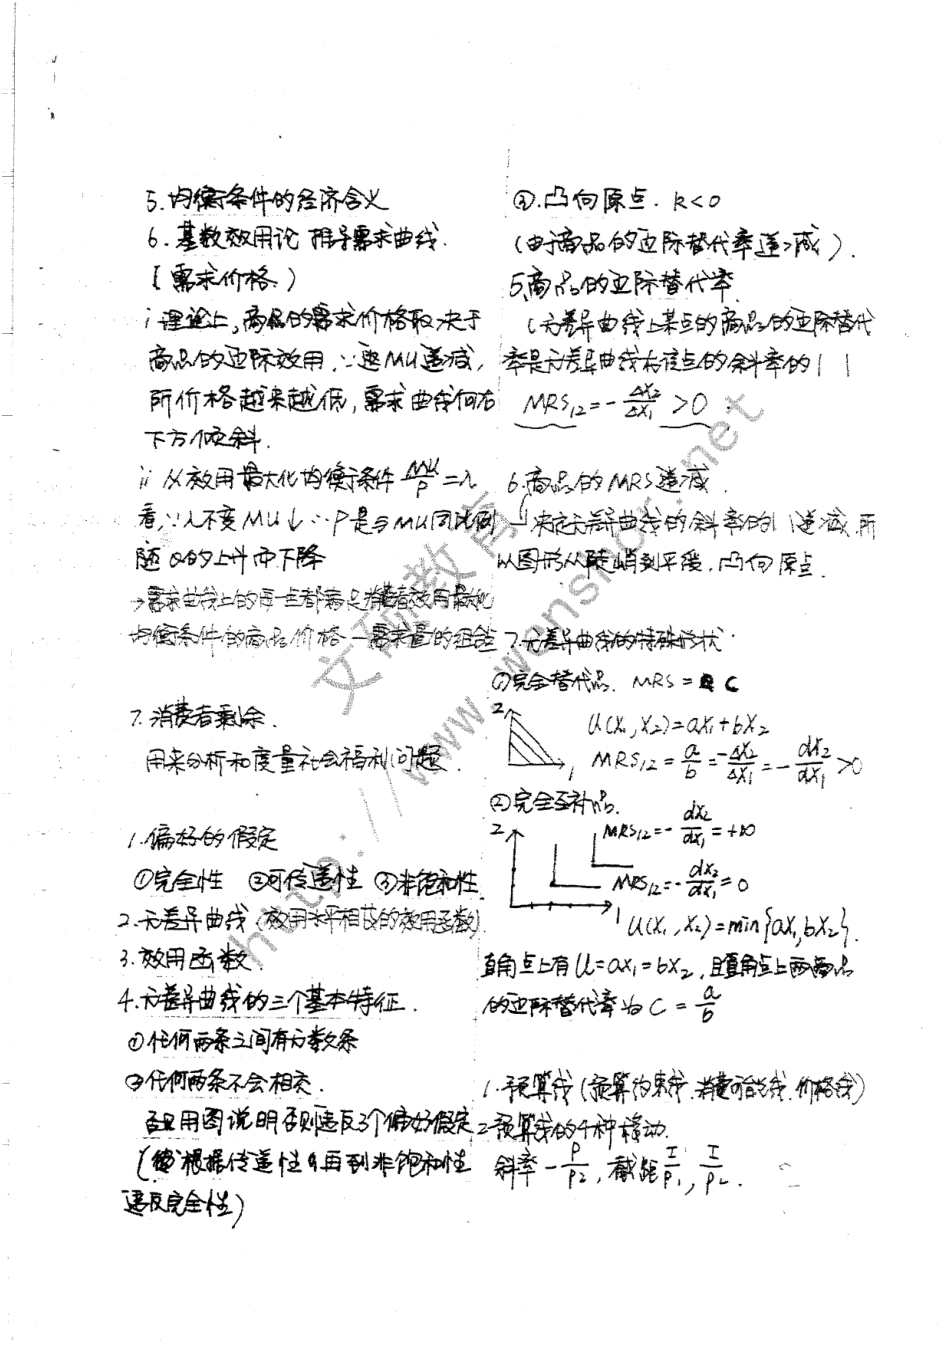 5. 均衡条件的经济含义
6. 基数效用论 推导需求曲线.
(需求价格)
i 理论上,商品的需求价格取决于
商品的边际效用,∵边MU递减,
所价格越来越低,需求曲线向右
下方倾斜.
ii 从效用最大化均衡条件 MU/P = λ
看,∵λ不变 MU↓ ∴P是与MU同比例
随Q的上升而下降
→需求曲线上的每一点都满足消费者效用最大化
均衡条件的商品价格—需求量的组合
7. 消费者剩余.
用来分析和度量社会福利问题.
1. 偏好的假定
①完全性 ②可传递性 ③非饱和性
2. 无差异曲线 (效用水平相应的效用函数)
3. 效用函数.
4. 无差异曲线的三个基本特征.
①任何两条之间有无数条
②任何两条不会相交.
用图说明否则违反3个偏好假定
(根据传递性 再到非饱和性
违反完全性)
③. 凸向原点. k<0
(由于商品的边际替代率递减).
5. 商品的边际替代率
(无差异曲线上某点的商品的边际替代
率是无差异曲线在该点的斜率的| |
MRS12 = - ΔX2/ΔX1 > 0.
6. 商品的MRS递减.
决定无差异曲线的斜率的| |递减,所
以图形从陡峭到平缓,凸向原点.
7. 无差异曲线的特殊形状:
①完全替代品. MRS = C
2
1
U(X1, X2) = aX1 + bX2
MRS12 = a/b = -ΔX2/ΔX1 = - dX2/dX1 > 0
②完全互补品.
2
MRS12 = - dX2/dX1 = +∞
MRS12 = - dX2/dX1 = 0
1
U(X1, X2) = min{aX1, bX2}.
直角点上有U = aX1 = bX2, 且直角点上两商品
的边际替代率为 C = a/b
1. 预算线 (预算约束线.消费可能线.价格线)
2. 预算线的4种移动.
斜率 - P1/P2, 截距 I/P1, I/P2.
文硕教育
http://www.wenshuo.net